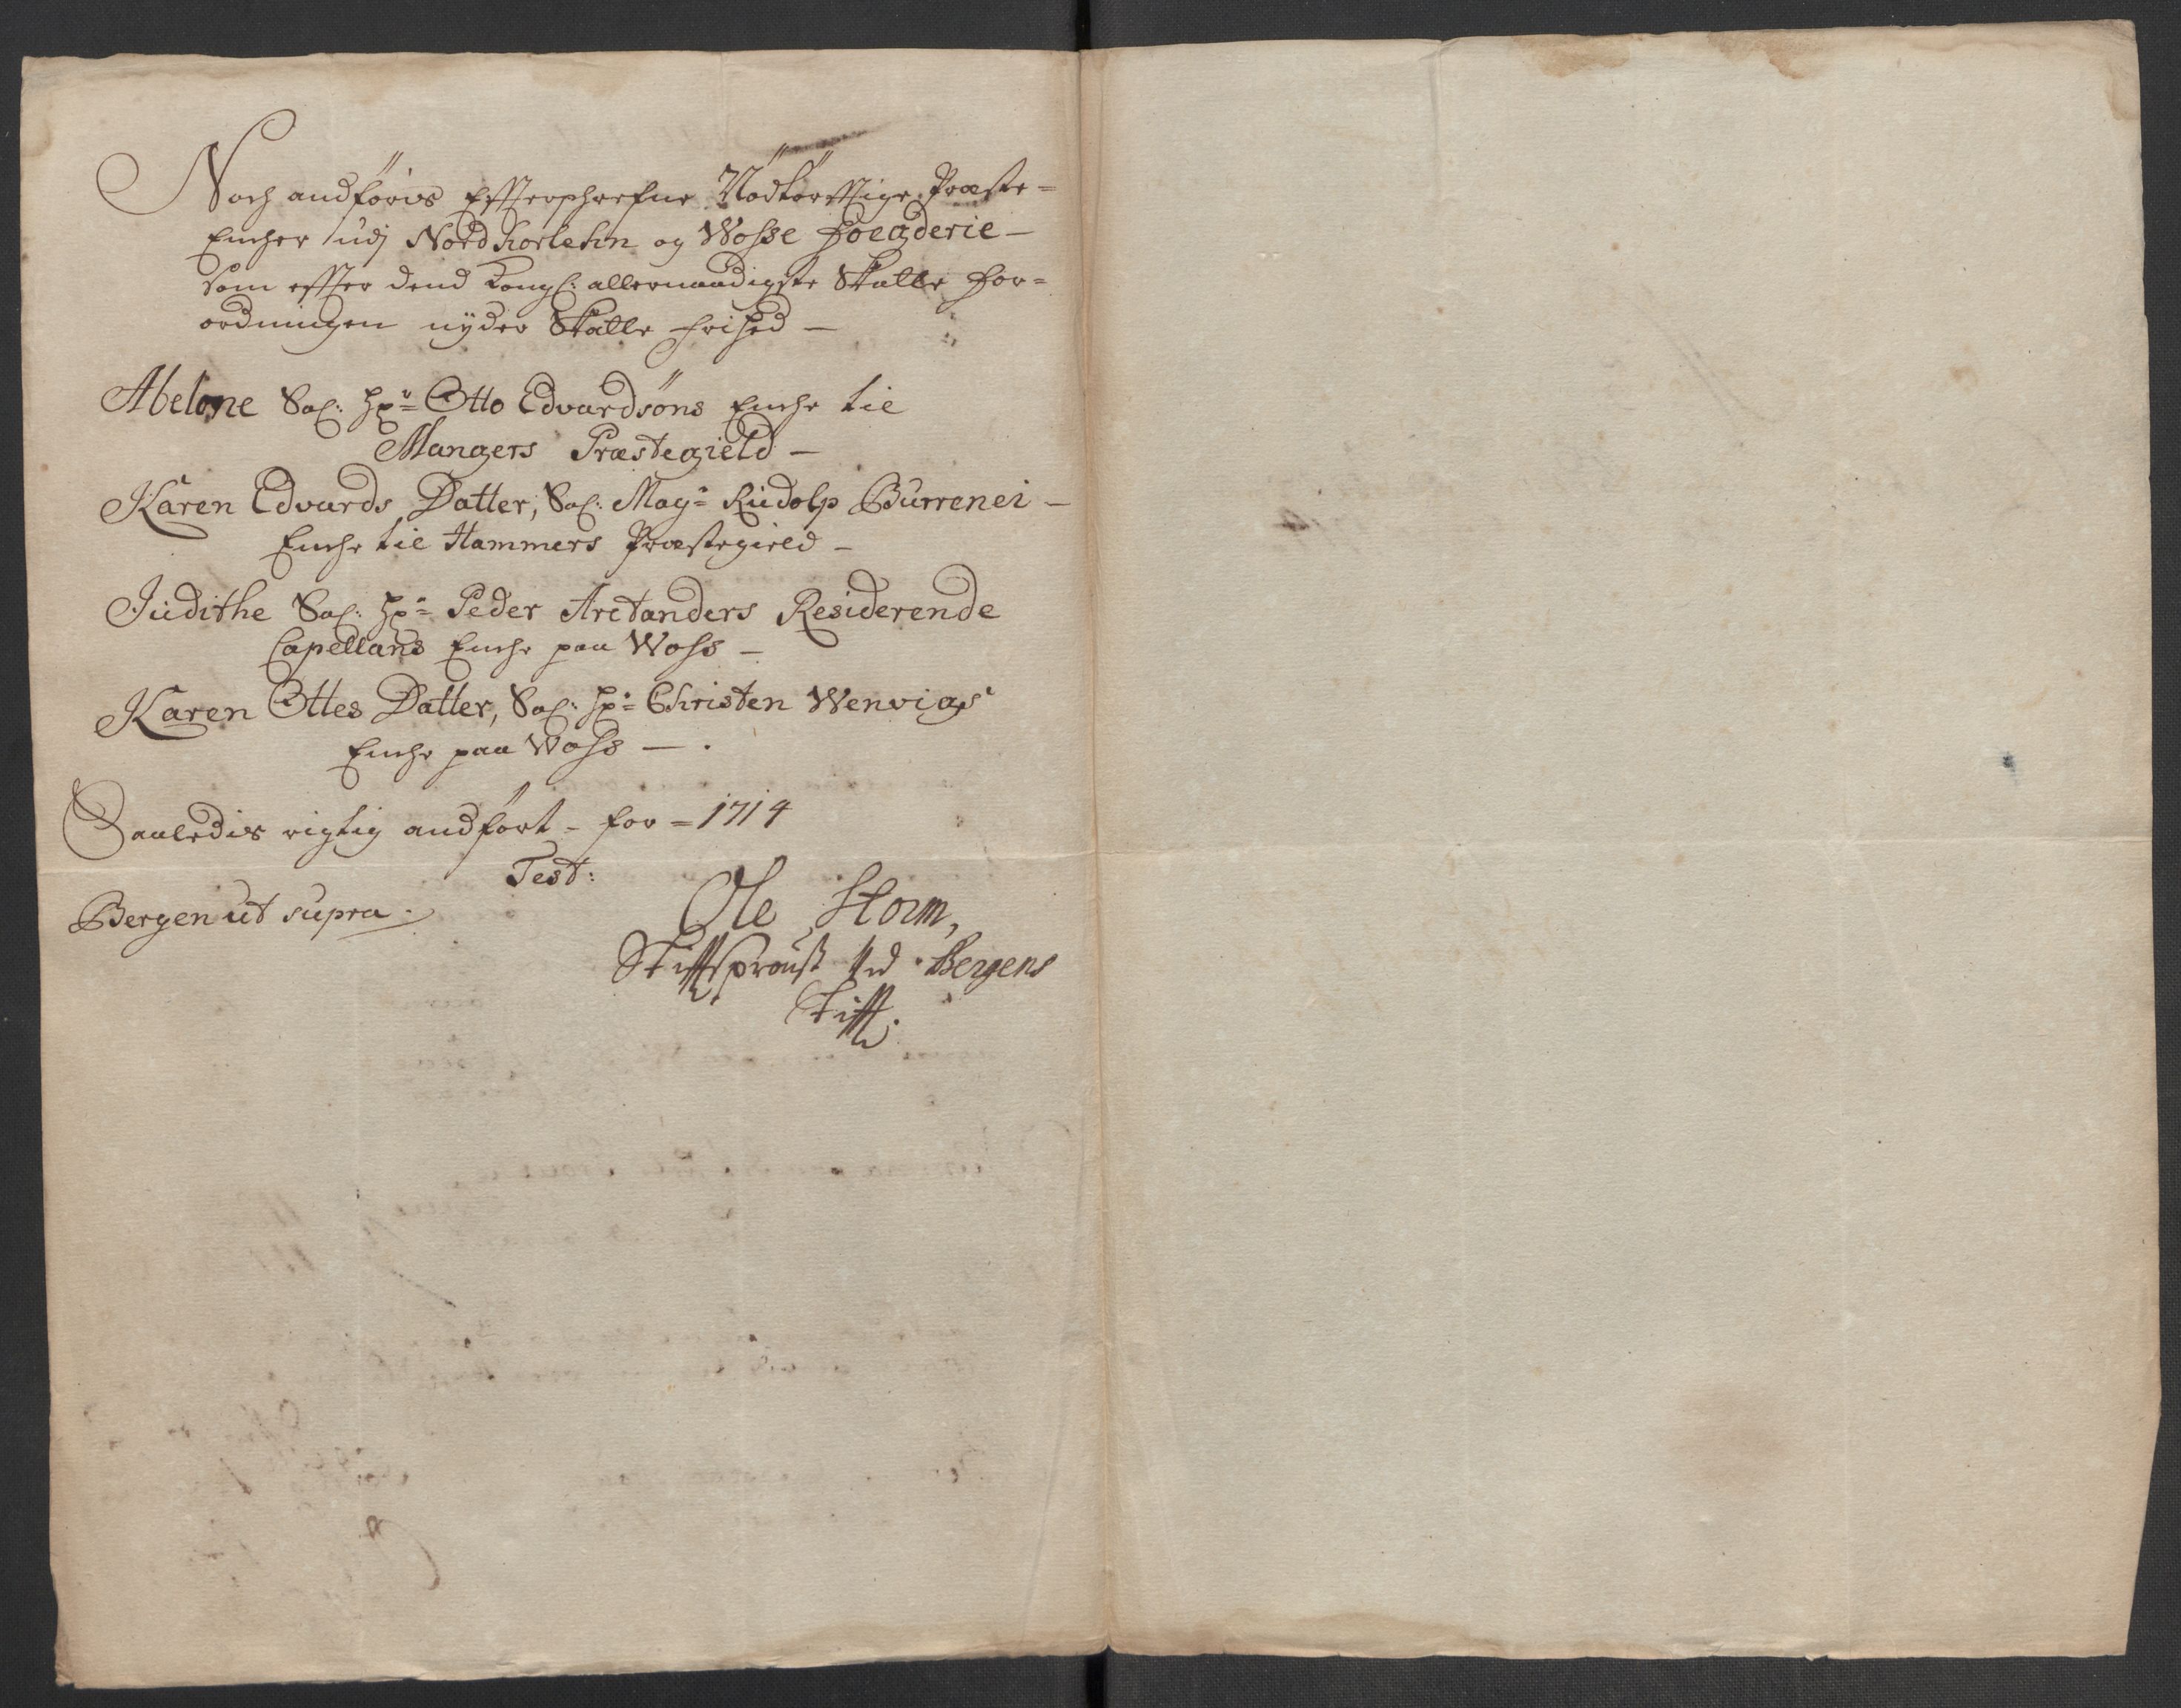 Noch andføris Effterschrefne Nødtørfftige Præste-
Encher udj Nordhorlehn og Wosse Foegderie -
Som effter dend Kongl: allernaadigste Skatte For-
ordningen nyder Skatte frihed -
Abelone Sal: Hr: Otto Edvardsøns Enche til
Mangers Præstegield -
Karen Edvards Datter, Sal: Mag: Rudolp Burrenei -
Enche til Hammers Præstegield -
Judithe Sal: Hr: Peder Arctanders Residerende
Capellans Enche paa Woss -
Karen Ottes Datter, Sal: Hr: Christen Wenvigs
Enche paa Woss - .
Saaledis rigtig andført - for - 1714
Test:
Bergen ut supra.
Ole Storm,
Stifftsproust Ved Bergens
Stifft.